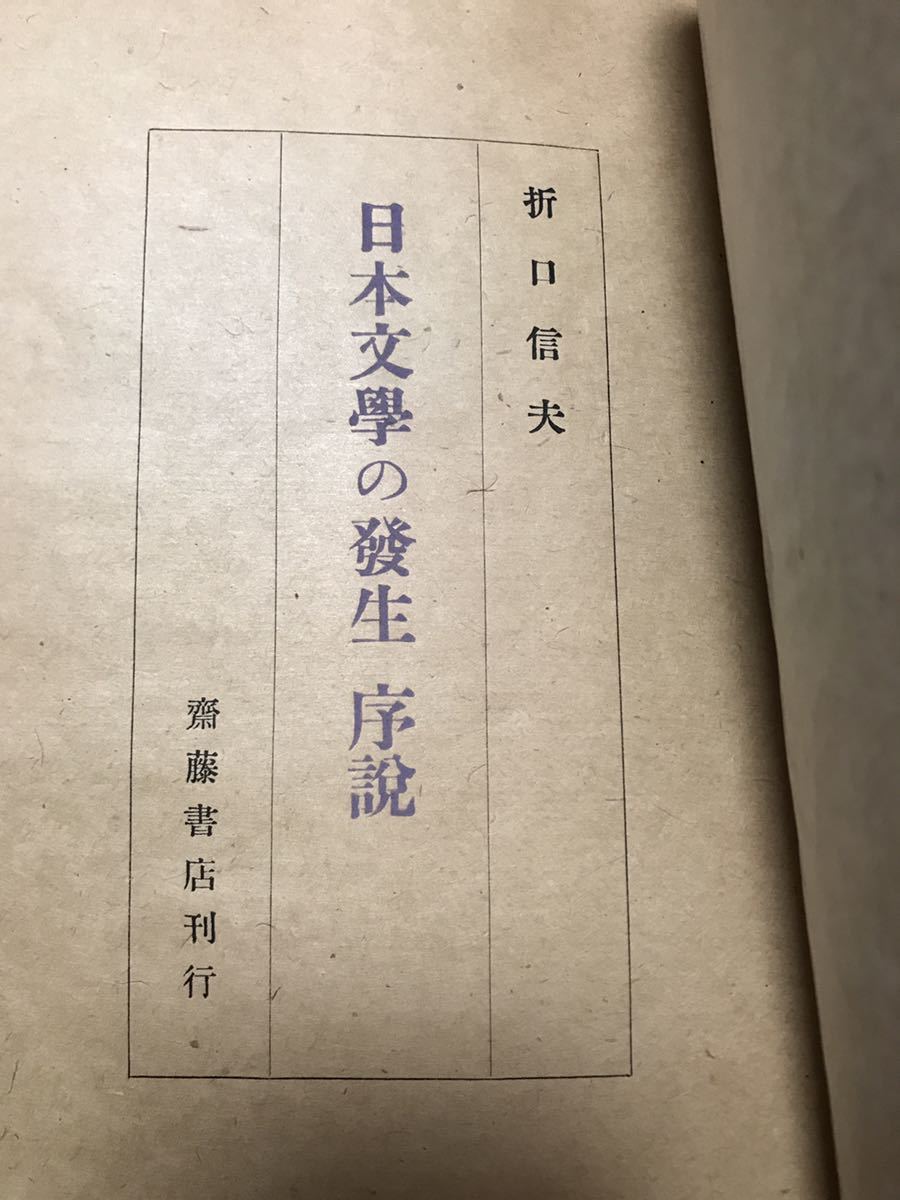 折口信夫
日本文學の發生 序說
齋藤書店刊行